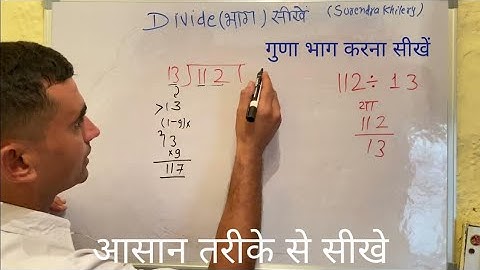 Divide (भाग) सीखे (Surendra Khilery)
गुणा भाग करना सीखें
13)112(
112÷13
या
112
13
>13
(1-9)x
13
x9
117
आसान तरीके से सीखे